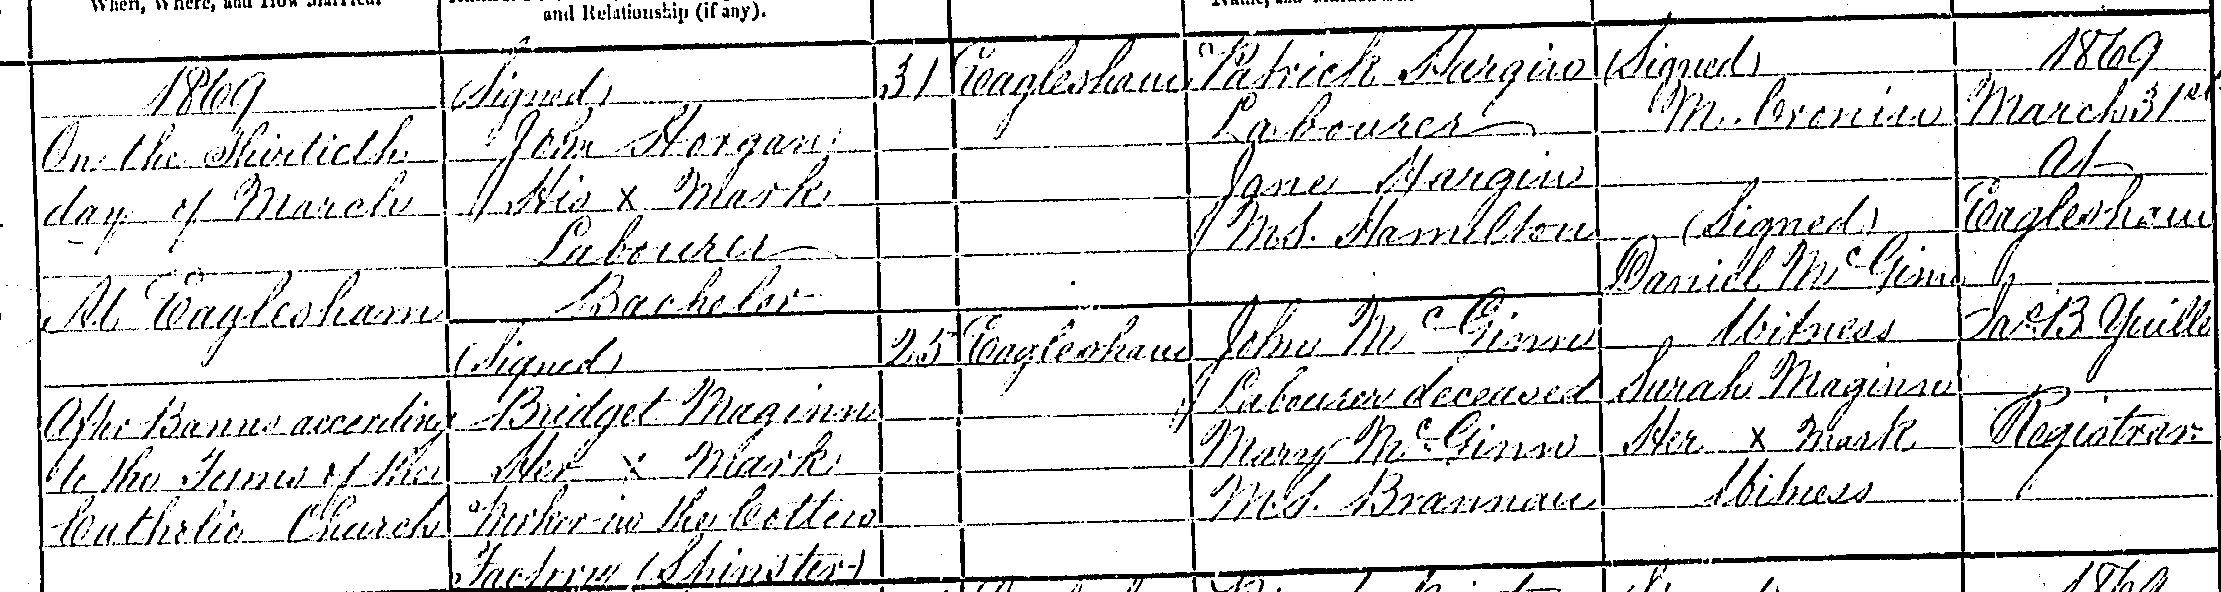 When, Where, and How Married.
and Relationship (if any).
1869
On the Thirtieth
day of March
At Eaglesham
After Banns according
to the Forms of the
Catholic Church
(Signed)
John Horgan
His x Mark
Labourer
Bachelor
(Signed)
Bridget Maginn
Her x Mark
Worker in the Cotton
Factory (Spinster)
31
25
Eaglesham
Eaglesham
Patrick Hargin
Labourer
Jane Hargin
M.S. Hamilton
John McGinn
Labourer deceased
Mary McGinn
M.S. Brannan
(Signed)
M. Cronin
(Signed)
Daniel McGinn
Witness
Sarah Maginn
Her x Mark
Witness
1869
March 31st
At
Eaglesham
Jas B Yuille
Registrar
1869